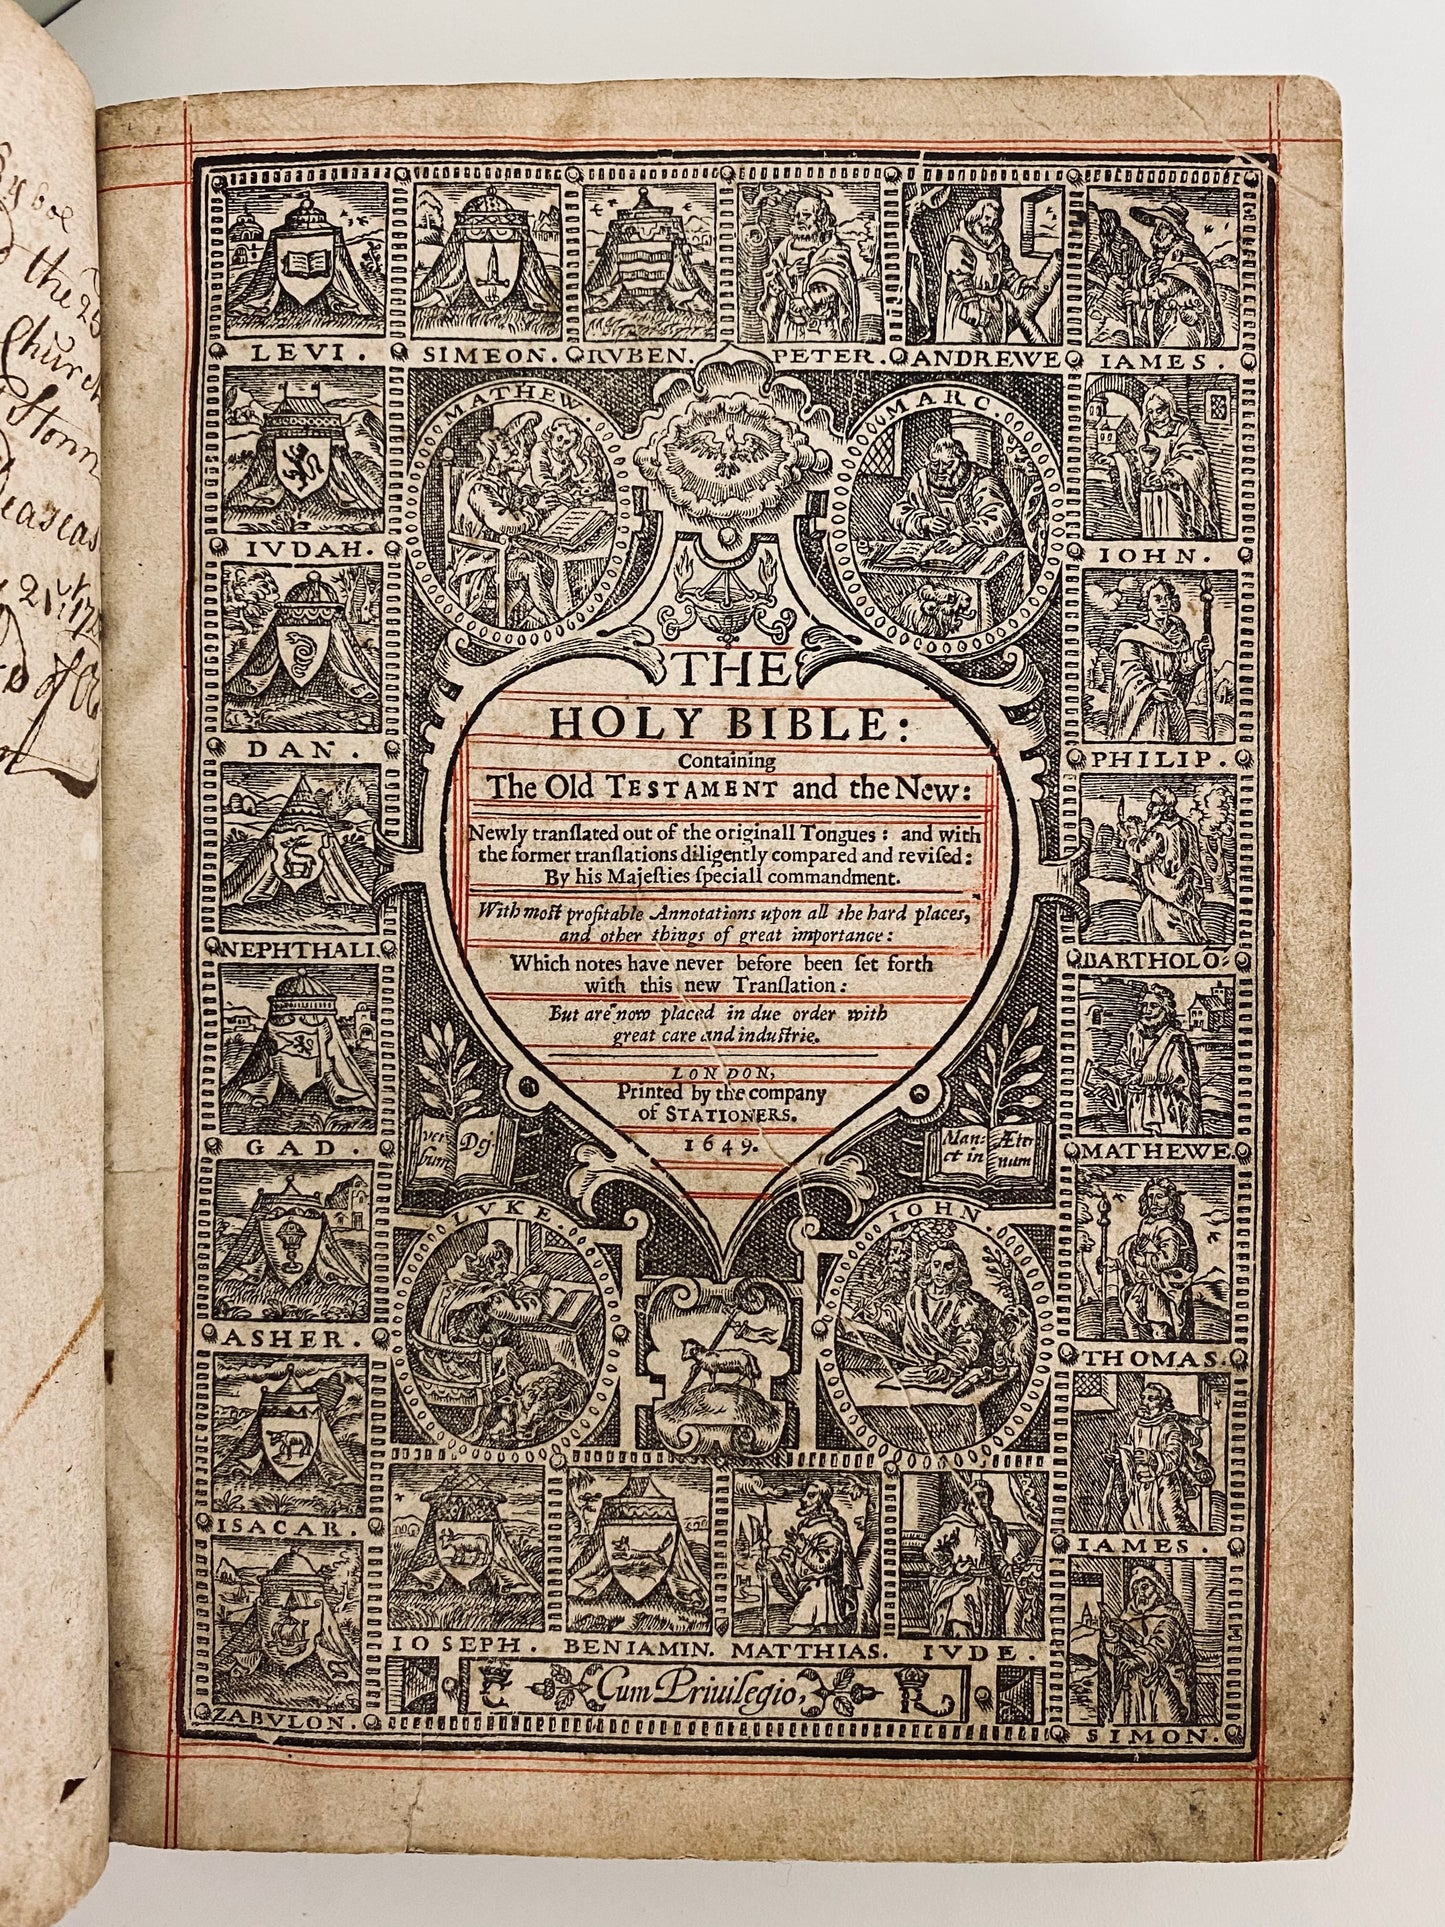 the 25
Church
LEVI. SIMEON. RVBEN. PETER. ANDREWE IAMES.
MATHEW. MARC.
IVDAH. IOHN.
DAN. PHILIP.
NEPHTHALI. BARTHOLO:
GAD. MATHEWE.
ASHER. THOMAS.
ISACAR. IAMES.
ZABVLON. SIMON.
THE
HOLY BIBLE:
Containing
The Old TESTAMENT and the New:
Newly tranſlated out of the originall Tongues: and with
the former tranſlations diligently compared and reviſed:
By his Majeſties ſpeciall commandment.
With moſt profitable Annotations upon all the hard places,
and other things of great importance:
Which notes have never before been ſet forth
with this new Tranſlation:
But are now placed in due order with
great care and induſtrie.
LONDON,
Printed by the company
of STATIONERS.
1649.
ver bum Dej.
Man: et in Æter num
LVKE. IOHN.
IOSEPH. BENIAMIN. MATTHIAS. IVDE.
C Cum Priuilegio, R